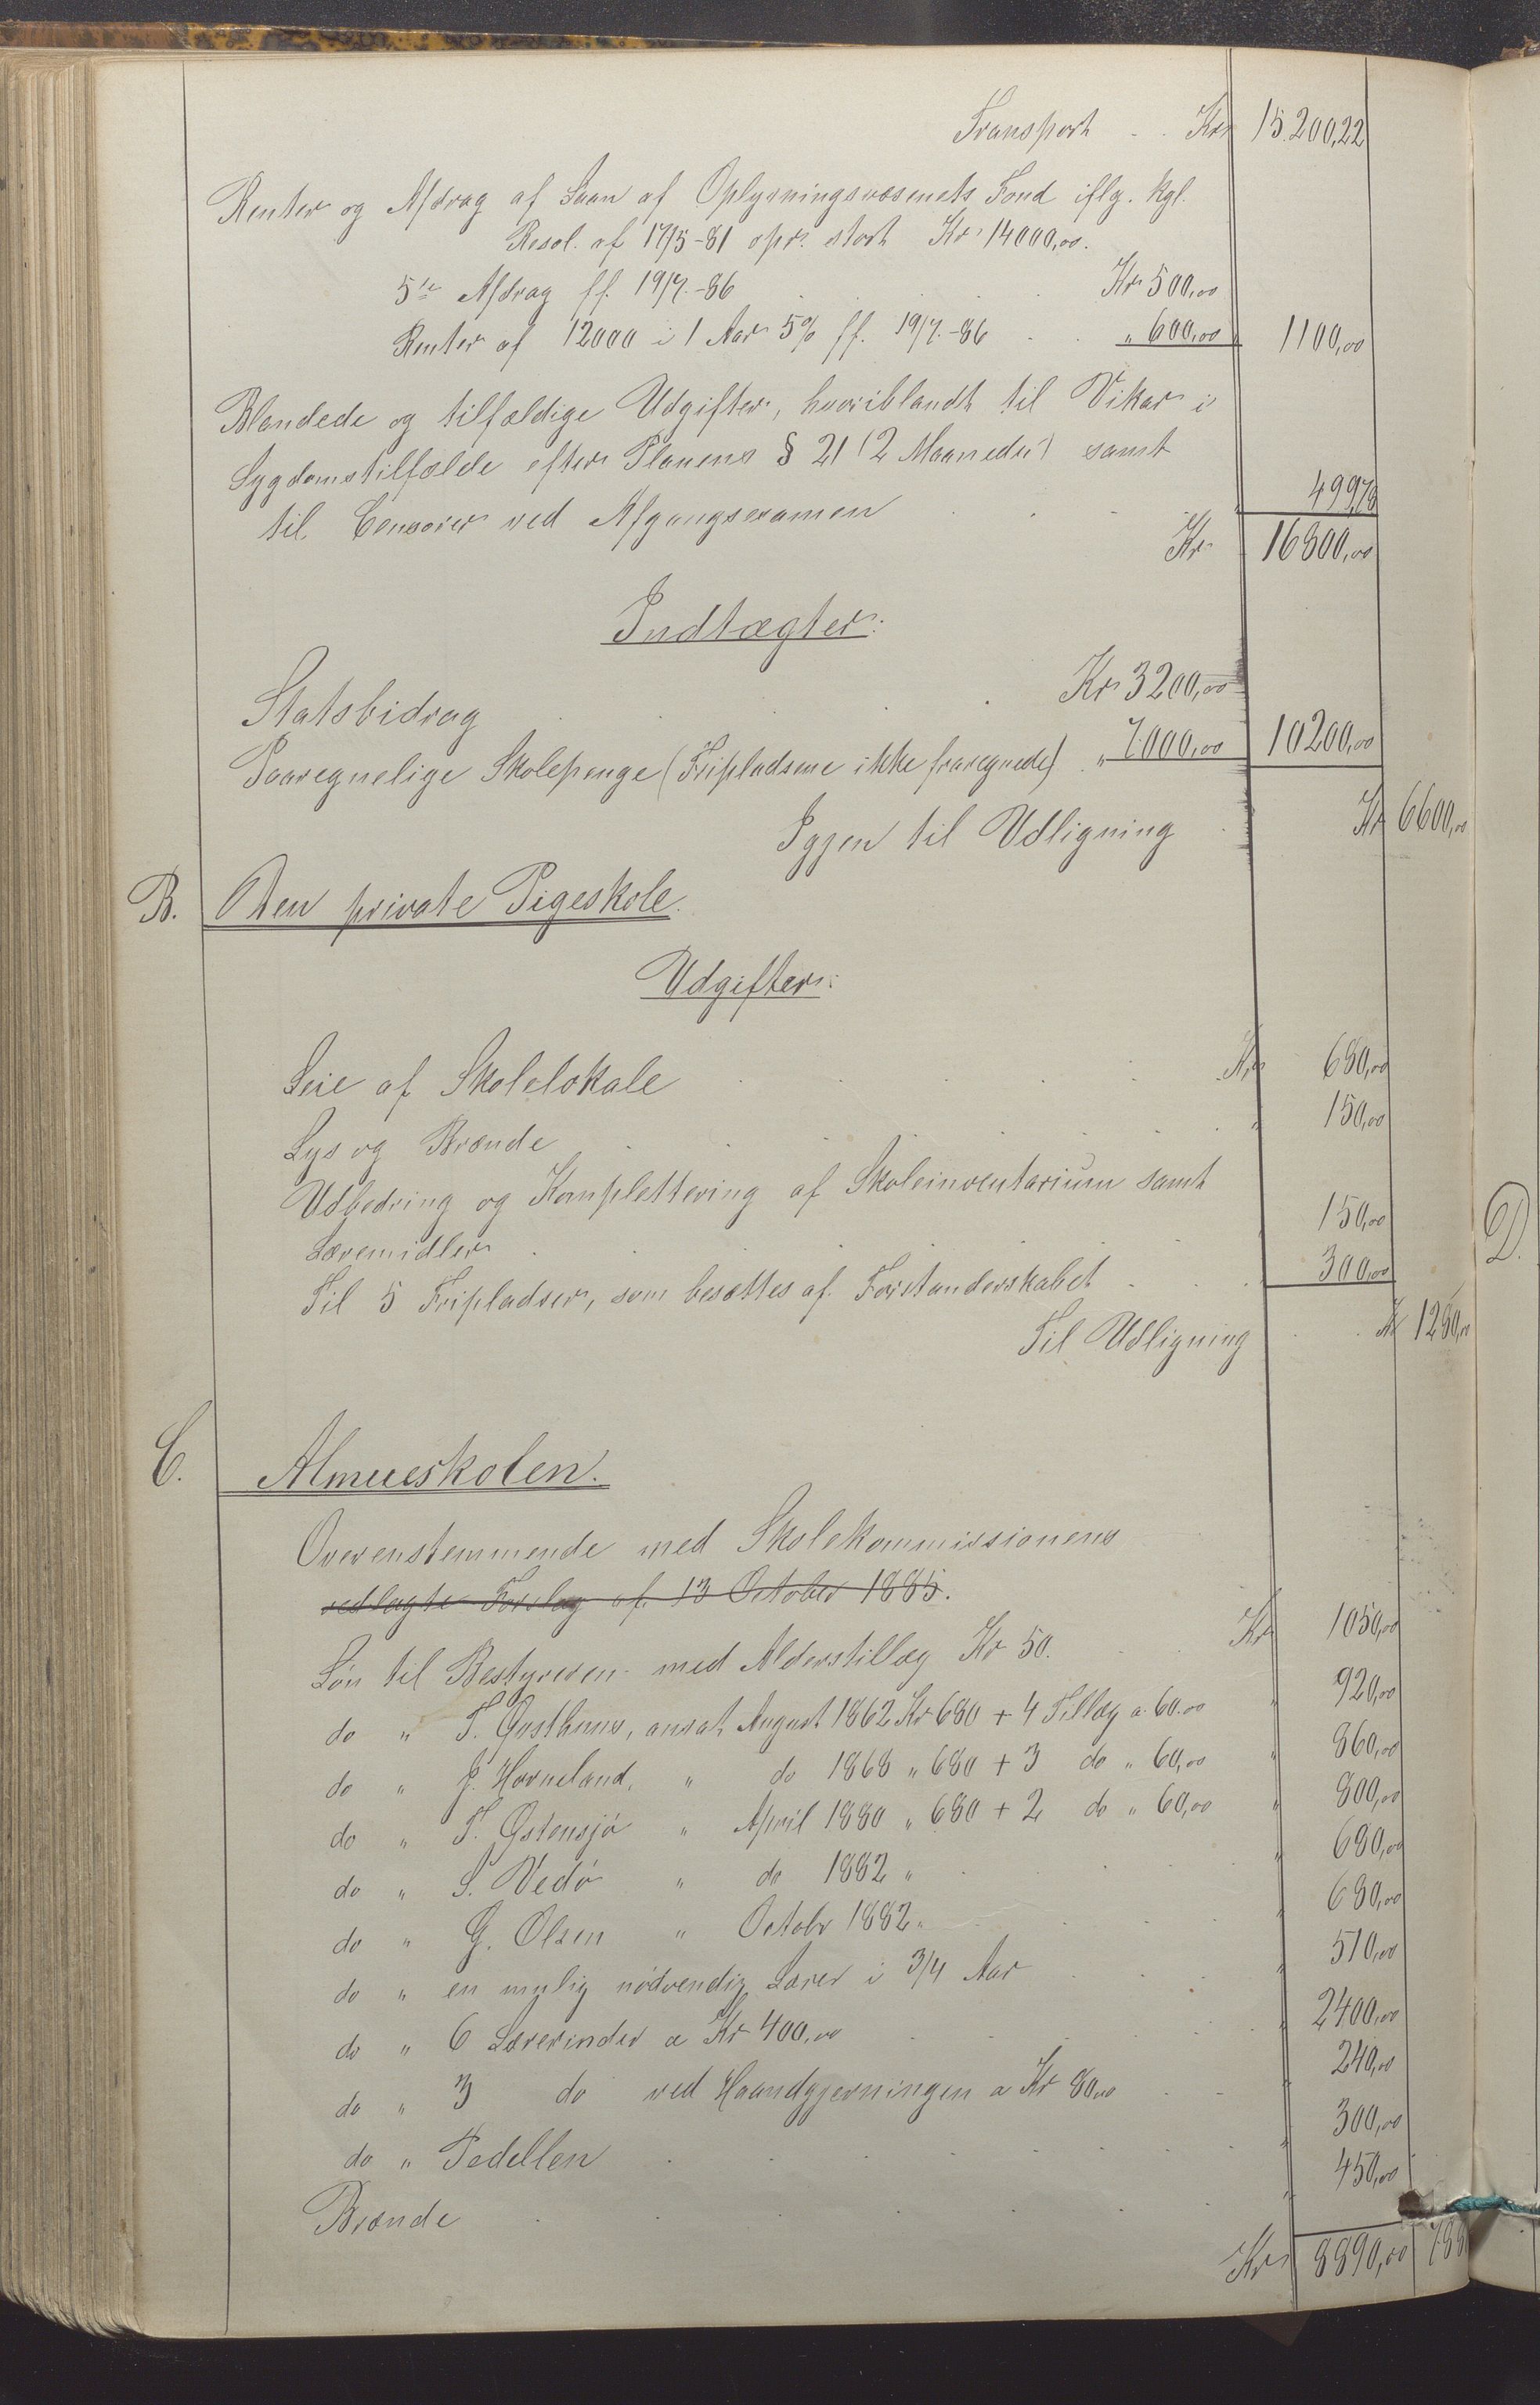 Transport . . Kr 15200,22
Renter og Afdrag af Laan af Oplysningsvæsenets Fond iflg. kgl.
Resol. af 17/5-81 opr. stort Kr 14000,00.
5te Afdrag ff. 19/7.-86 . . . Kr 500,00
Renter af 12000 i 1 Aar 5% ff. 19/7.-86 . . " 600,00 1100,00
Blandede og tilfældige Udgifter, hvoriblandt til Vikar i
Sygdomstilfælde efter Planens § 21 (2 Maaneder) samt
til Censorer ved Afgangsexamen . . . 499,78
Kr 16800,00
Indtægter:
Statsbidrag . . . Kr 3200,00
Paaregnelige Skolepenge (Fripladsene ikke fraregnede) . " 7000,00 10200,00
Igjen til Udligning . Kr 6600,00
B. Den private Pigeskole.
Udgifter:
Leie af Skolelokale . . . Kr 680,00
Lys og Brænde . . . " 150,00
Udbedring og Komplettering af Skoleinventarium samt
Læremidler . . . " 150,00
Til 5 Fripladser, som besættes af Forstanderskabet . . . 300,00
Til Udligning . . Kr 1280,00
D.
C. Almueskolen.
Overenstemmende med Skolekommissionens
vedlagte Forslag af 13 October 1885.
Løn til Bestyreren med Alderstillæg Kr 50. . . Kr 1050,00
do " T. Gusthuus, ansat August 1862 Kr 680 + 4 Tillæg a 60.00 " 920,00
do " J. Horneland, " do 1868 " 680 + 3 do " 60,00 " 860,00
do " T. Østensjø " April 1880 " 680 + 2 do " 60,00 " 800,00
do " S. Vedø " do 1882 " . . . " 680,00
do " G. Olsen " Octobr 1882 " . . . " 680,00
do " en mulig nödvendig Lærer i 3/4 Aar . . . " 510,00
do " 6 Lærerinder a Kr 400,00 . . . " 2400,00
do " 3 do ved Haandgjerningen a Kr 80,00 . . " 240,00
do " Pedellen . . . " 300,00
Brænde . . . " 450,00
Kr 8890,00 788